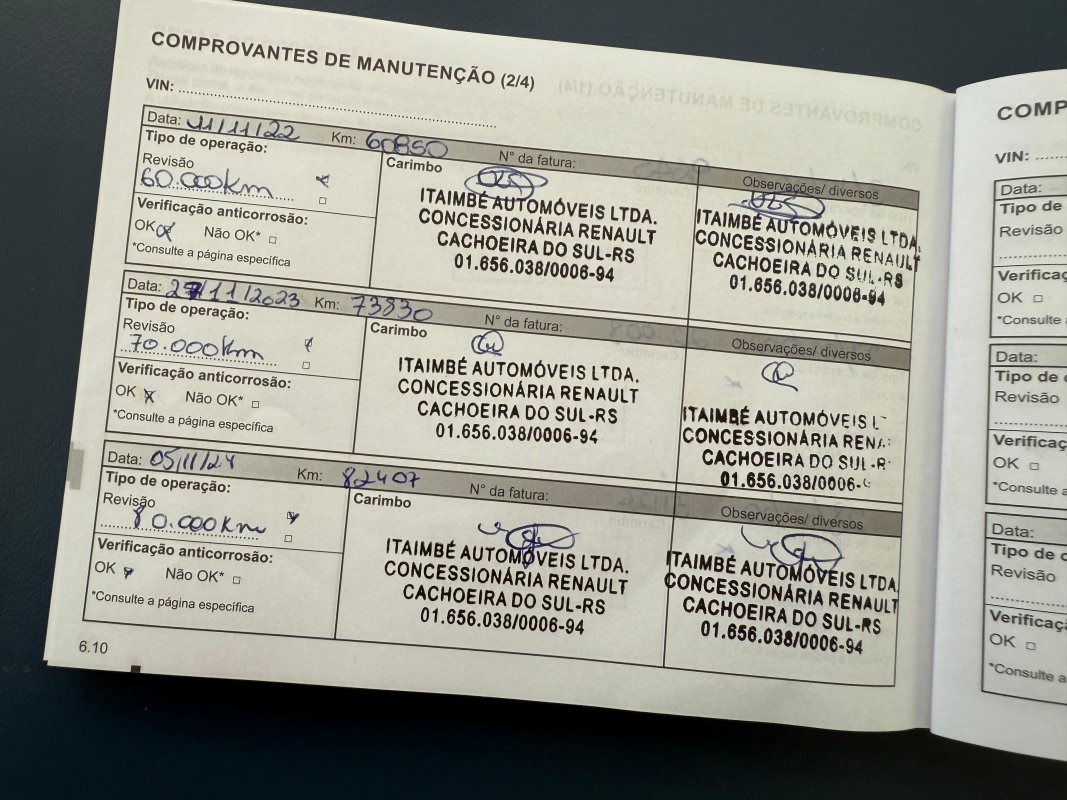 COMPROVANTES DE MANUTENÇÃO (2/4)
VIN:
Data: 11/11/22 Km: 60850 N° da fatura:
Tipo de operação:
Revisão
60.000Km
Verificação anticorrosão:
OK Não OK*
*Consulte a página específica
Carimbo
ITAIMBÉ AUTOMÓVEIS LTDA.
CONCESSIONÁRIA RENAULT
CACHOEIRA DO SUL-RS
01.656.038/0006-94
Observações/ diversos
ITAIMBÉ AUTOMÓVEIS LTDA.
CONCESSIONÁRIA RENAULT
CACHOEIRA DO SUL-RS
01.656.038/0006-94
Data: 27/11/2023 Km: 73830 N° da fatura:
Tipo de operação:
Revisão
70.000Km
Verificação anticorrosão:
OK Não OK*
*Consulte a página específica
Carimbo
ITAIMBÉ AUTOMÓVEIS LTDA.
CONCESSIONÁRIA RENAULT
CACHOEIRA DO SUL-RS
01.656.038/0006-94
Observações/ diversos
ITAIMBÉ AUTOMÓVEIS
CONCESSIONÁRIA RENA
CACHOEIRA DO SUL-R
01.656.038/0006-
Data: 05/11/24 Km: 82407 N° da fatura:
Tipo de operação:
Revisão
80.000Km
Verificação anticorrosão:
OK Não OK*
*Consulte a página específica
Carimbo
ITAIMBÉ AUTOMÓVEIS LTDA.
CONCESSIONÁRIA RENAULT
CACHOEIRA DO SUL-RS
01.656.038/0006-94
Observações/ diversos
ITAIMBÉ AUTOMÓVEIS LTDA.
CONCESSIONÁRIA RENAULT
CACHOEIRA DO SUL-RS
01.656.038/0006-94
6.10
COMP
VIN:
Data:
Tipo de
Revisão
Verificaç
OK
*Consulte a
Data:
Tipo de
Revisão
Verificaç
OK
*Consulte a
Data:
Tipo de
Revisão
Verificaç
OK
*Consulte a